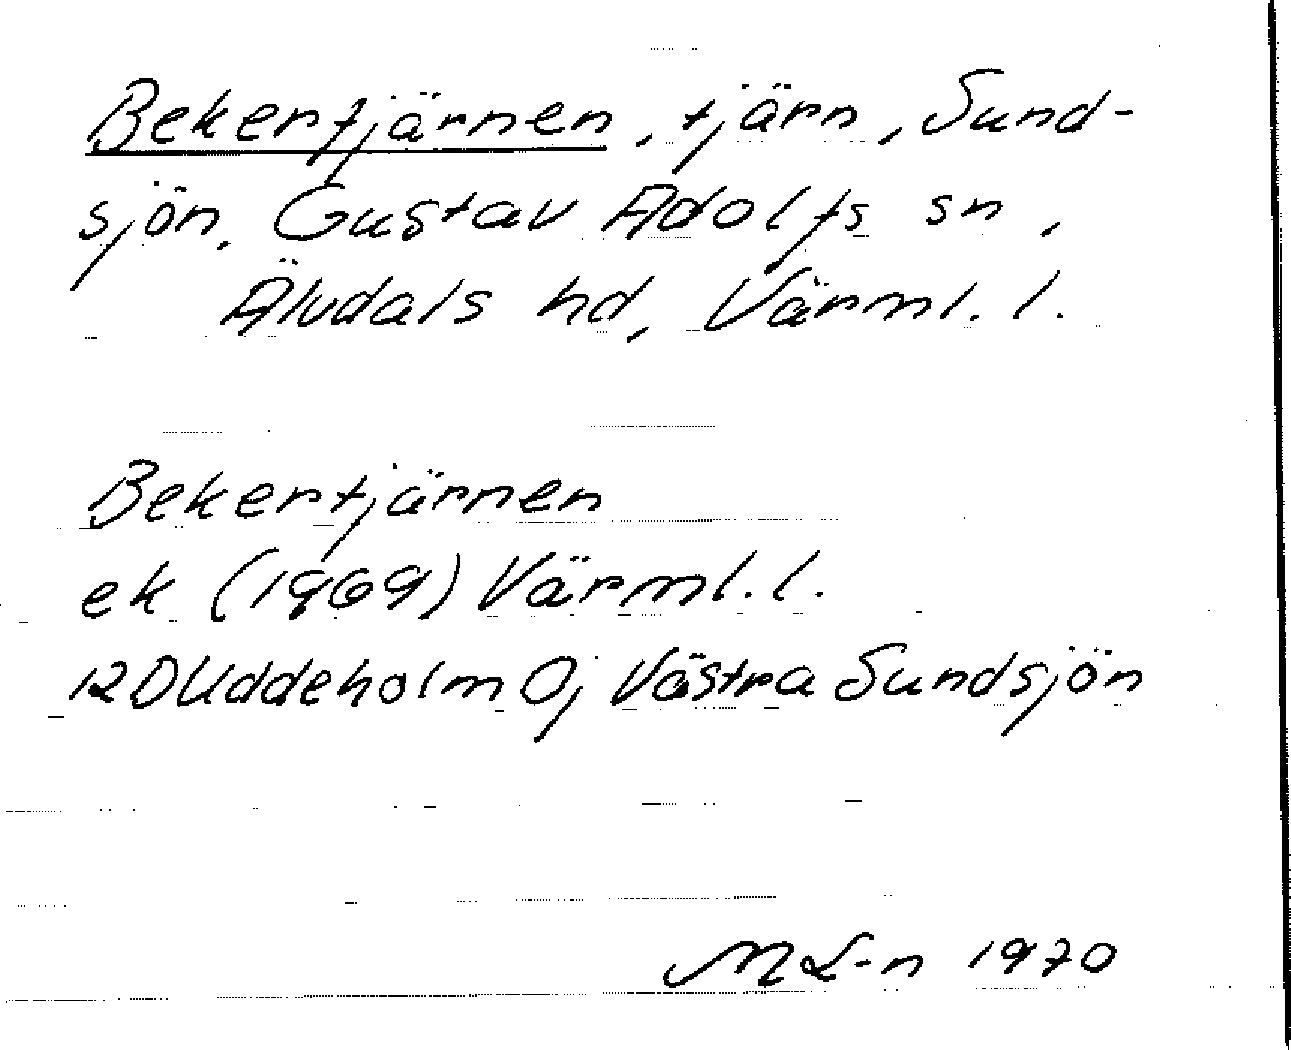 Bekertjärnen, tjärn, Sund-
sjön, Gustav Adolfs sn,
Älvdals hd, Värml. l.
Bekertjärnen
ek (1969) Värml. l.
12D Uddeholm 0j Västra Sundsjön
ML-n 1970